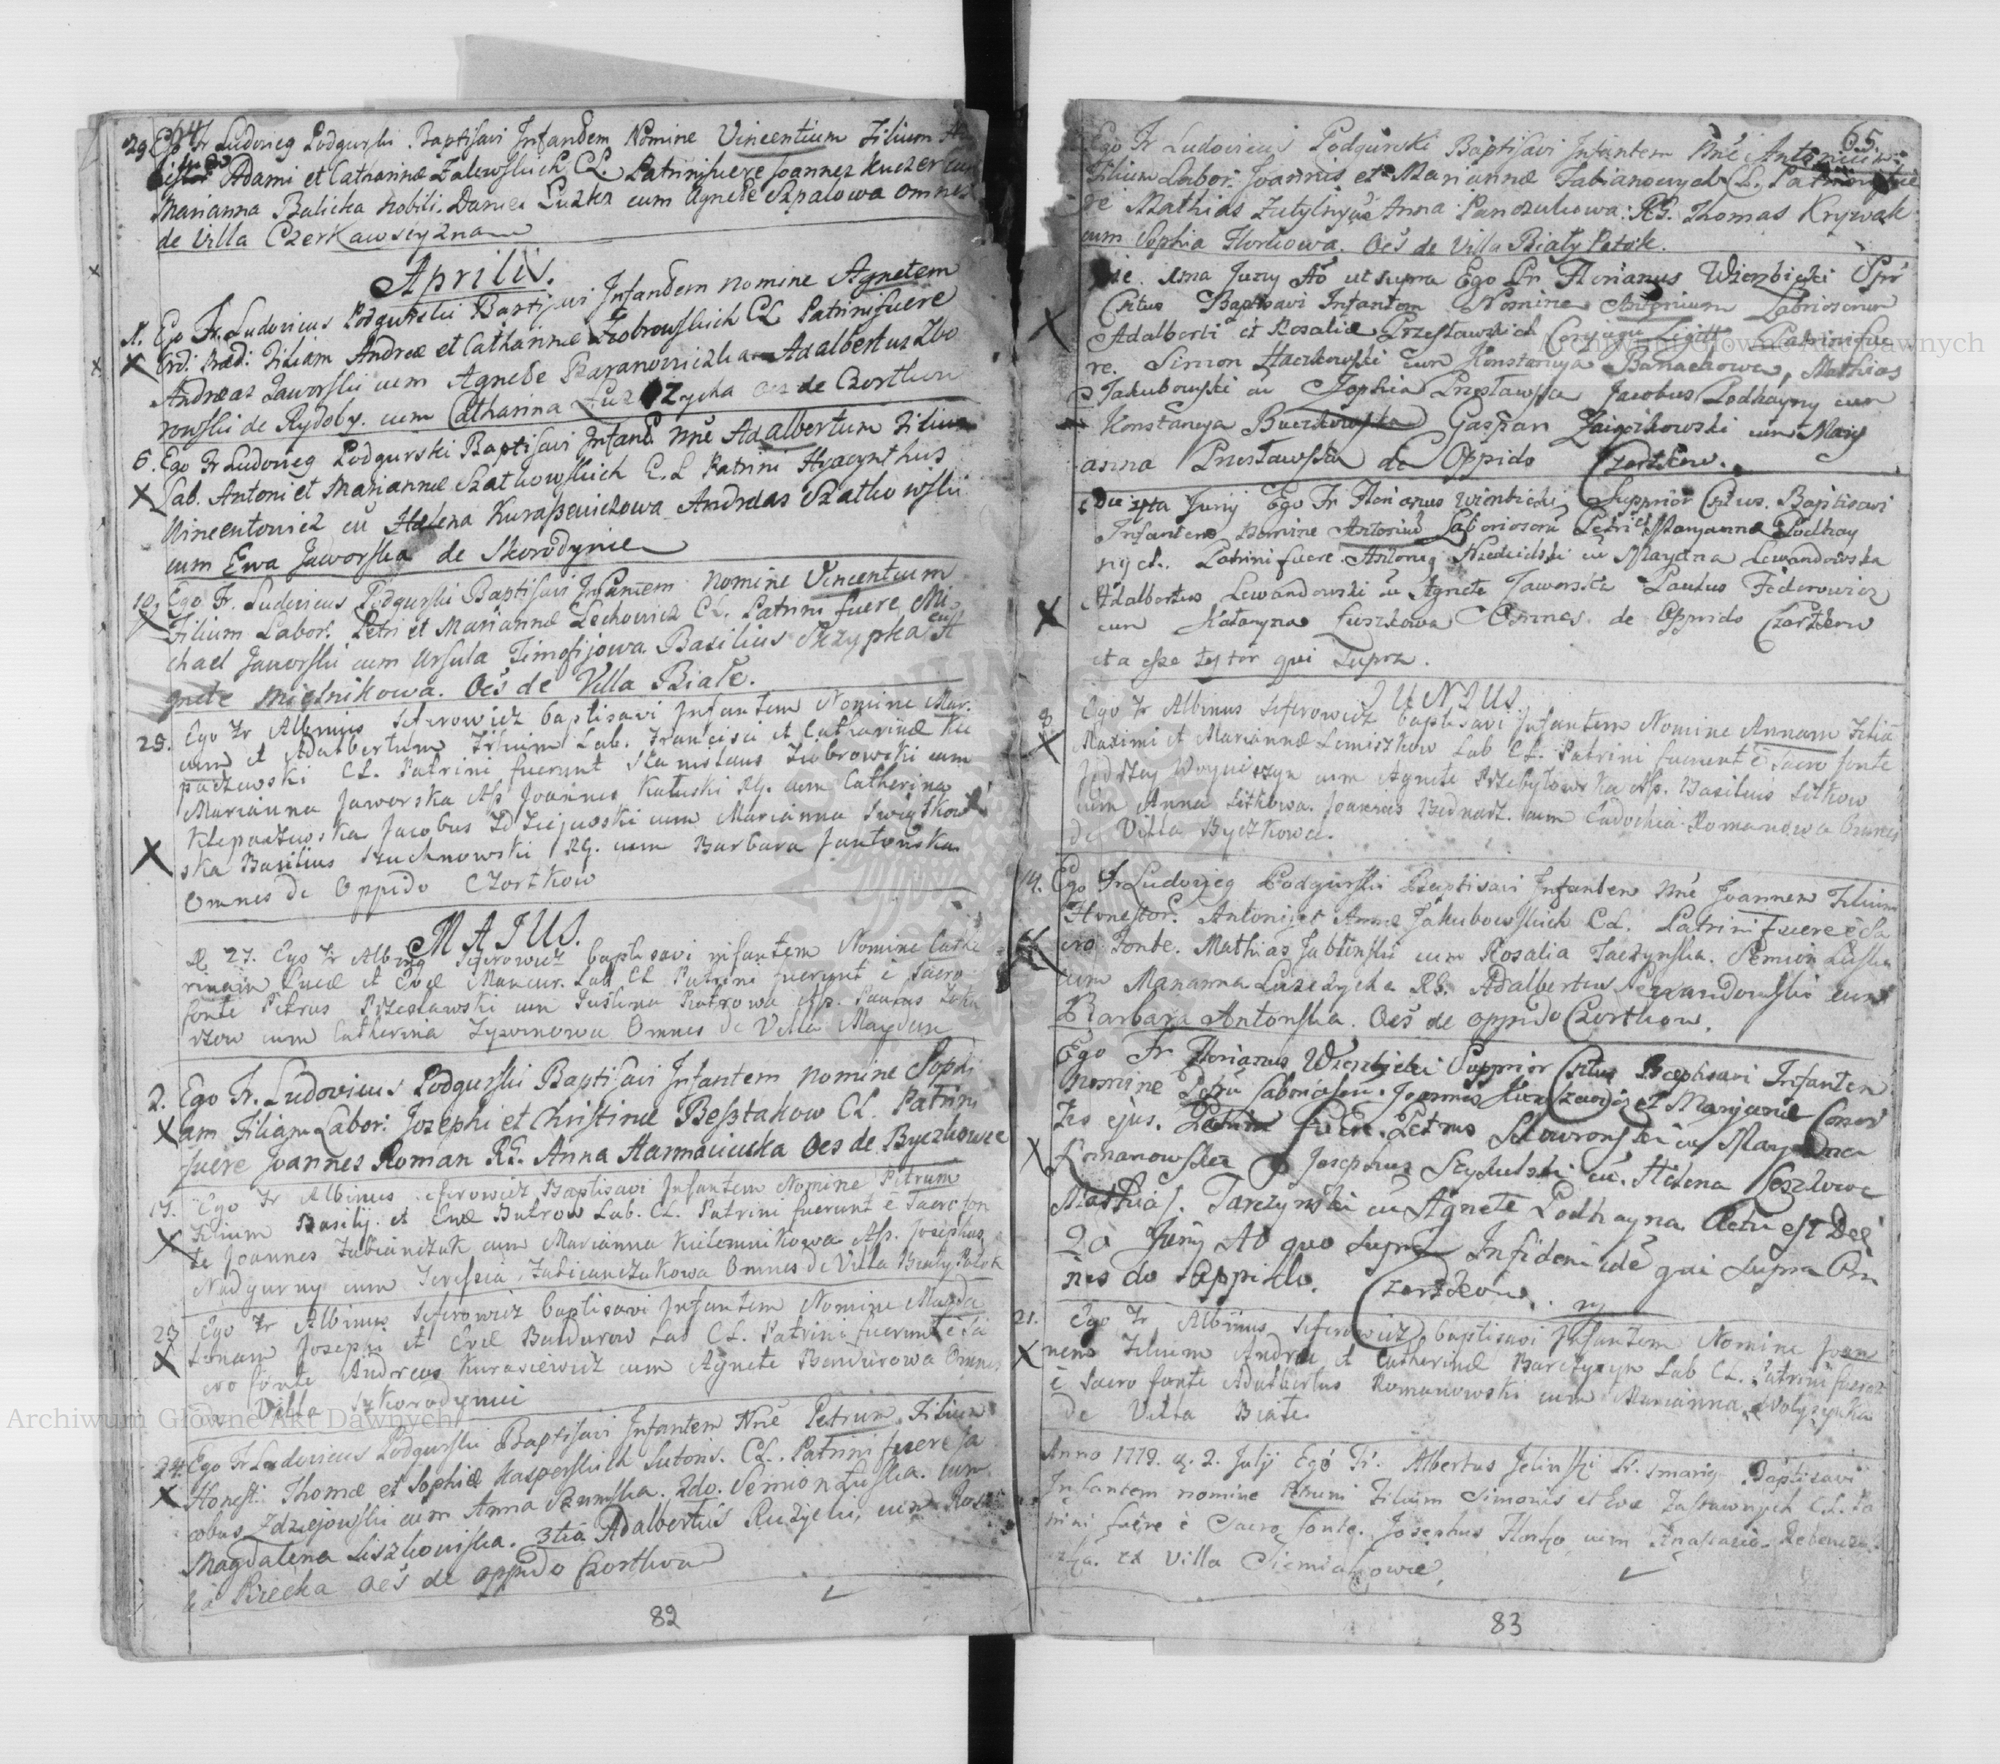 64
29 Ego Fr Ludovicg Podgurski Baptisavi Infandem Nomine Vincentium Filium
Adami et Catharinæ Zalewskich CL. Patrini fuere Joannes Kuczer cum
Marianna Bulicka Nobili. Daniel Luzka cum Agnede Szpalowa omnes
de Villa Czerkawscyzna
Aprilis.
1. Ego Fr. Ludovicus Podgurski Baptisavi Infandem nomine Agnetem
Ord: Præd: Filiam Andreæ et Catharinæ Zcobrowskich CL Patrini fuere
Andreas Jaworski cum Agnede Baranowiczka Adalbertus Zbo
rowski de Rydoby. cum Catharina Luszczycka de Czortkow
6. Ego Fr Ludovicg Podgurski Baptisavi Infand Nne Adalbertum Filium
Lab. Antoni et Mariannæ Szatkowskich C.L Patrini Hyacynthus
Wincentowicz cu Helena Kuraszewiczowa Andreas Szatkowski
cum Ewa Jaworska de Skorodynce
10. Ego Fr. Ludovicus Podgurski Baptisavi Infantem nomine Vincentium
Filium Labor. Petri et Mariannæ Lechowicz CL. Patrini fuere Mi
chael Jaworski cum Ursula Timofijowa Basilius Skrypka cum A
gnete Mielnikowa. Oes de Villa Biate.
25. Ego Fr Albinus Seferowicz baptisavi Infantem Nomine Mar.
cum et Adalbertum Filium Lab. Francisci et Catharinæ Kle
paczewski CL. Patrini fuerunt Stanislaus Zcobrowski cum
Marianna Jaworska Ass Joannes Katuski Rg. cum Catherina
Kleparzewska Jacobus Zdziejowski cum Marianna Swiątkow
ska Basilius Szuchnowski Rg. cum Barbara Jantonska
Omnes de Oppido Czortkow
MAJUS.
D. 27. Ego Fr Albing Seferowicz baptisavi infantem Nomine Cathe
rinam Lucæ et Evæ Mancur. Lab CL Patrini fuerunt è Sacro
fonte Petrus Przestawski cum Justina Piotrowa Ass. Paulus
cum Catherina Zyswinowa Omnes de Villa Maydan
2. Ego Fr. Ludovicus Podgurski Baptisavi Infantem nomine Sophi
am Filiam Labor: Josephi et Christinæ Besztakow CL. Patrini
fuere Joannes Roman RG. Anna Harmaciucka Oes de Byczkowce
Ego Fr Albinus Seferowicz Baptisavi Infantem Nomine Petrum
Filium Basilij et Evæ Butrow Lab. CL. Patrini fuerunt è Sacro fon
te Joannes Fabianczuk cum Marianna Kielemnikowa Ass. Josephus
Nadgurny cum Teressia Fabianczukowa Omnes de Villa Bialy Potok
23 Ego Fr Albinus Seferowicz baptisavi Infantem Nomine Magda
lenam Josephi et Evæ Bandurow Lab CL. Patrini fuerunt è Sa
cro fonte Andreas Kurasiewicz cum Agnete Bandurowa Omnes
De Villa Szkorodynici
24. Ego Fr Ludovicus Podgurski Baptisavi Infantem Nne Petrum Filium
Honest: Thomæ et Sophiæ Kasperskich Sutoris. CL. Patrini fuere Ja
cobus Zdziejowski cum Anna Szumska. 2do. Semion Luska. cum
Magdalena Liszkowiska. 3tia Adalbertus Ruzycki, cum Rosa
lia Biecka Oes de oppido Czortkow
82
65.
Ego Fr Ludovicus Podgurski Baptisavi Infantem Nne Antonium
Filium Labor. Joannis et Mariannæ Fabianowych CL. Patrini fue
re Mathias Zatylny cu Anna Panczukowa. RG. Thomas Krywak
cum Sophia Horkowa. Oes de Villa Bialy Potok.
Die. ima Juny Ao ut supra Ego Fr Florianus Wierzbicki Spr
Csitus Baptisavi Infantem Nomine Antonium Labriosorum
Adalberti et Rosaliæ Przestawskich Conjugu Legitt Patrini fue
re. Simon Haczkowski cum Konstancya Banachowa, Mathias
Jakubowski cu Zophia Przestawska Jacobus Podhayny cum
Konstancya Buczkowska Gaspar Zaigczkowski cum Mary
anna Przestawska de Oppido Czortkow.
Die 4ta Juny Ego Fr Florianus Wierzbicki Supprior Csitus. Baptisavi
Infantem Nomine Antoniu Laboriosoru Petri et Maryannæ Podhay
nych. Patrini fuere Antonig Niedzielski cu Maryana Lewandowska
Adalbertus Lewandowski cu Agnete Jaworska Paulus Fiderowicz
cum Katarzyna Luszkowa Omnes de Oppido Czortkow
ita esse testor qui supra.
JUNIUS.
8 Ego Fr Albinus Seferowicz baptisavi Infantem Nomine Annam Filia
Maximi et Mariannæ Lemiszkow Lab CL. Patrini fuerunt è Sacro fonte
Jędrzey Woyciszyn cum Agnete Przebytowska Ass. Basilius Sitkow
cum Anna Sitkowa. Joannes Bednarz. cum Eudochia Romanowa Omnes
De Villa Byczkowa.
14. Ego Fr Ludovicg Podgurski Baptisavi Infantem Nne Joannem Filium
Honestor. Antonij et Annæ Jakubowskich CL. Patrini fuere è Sa
cro Fonte. Mathias Jabłonski cum Rosalia Taczynska. Semion Luska
cum Marianna Luszczycka RG. Adalbertus Lewandowski cum
Barbara Antonska. Oes de oppido Czortkow.
Ego Fr Florianus Wierzbicki Supprior Csitus Baptisavi Infantem
Nomine Petru Laboriosoru. Joannis et Maryanæ Conju
gis ejus. Patrini fuere. Petrus Skowronski cu Maryanna
Romanowska Josephus Szydulski cu. Helena Leszkowa
Mathias. Tarczynski cu Agnete Podhayna Actu est Die
20 Juny Ao quo supra Infidem idē qui supra Om
nes de Oppido. Czortkow.
21. Ego Fr Albinus Seferowicz baptisavi Infantem Nomine Joan
nem Filium Andreæ et Catherinæ Barczyszyn Lab CL. Patrini fuerunt
è Sacro fonte Adalbertus Romanowski cum Marianna Wolyszynka
De Villa Biate.
Anno 1779. d. 2. Julij Ego Fr. Albertus Jelinski Baptisavi
Infantem nomine Petrum Filium Simonis et Evæ Zastawnych C.L. Pa
trini fuere è Sacro fonte. Josephus Horko cum Anastasia
ex Villa Siemiakowce.
83
Archiwum Główne Akt Dawnych
Archiwum Główne Akt Dawnych